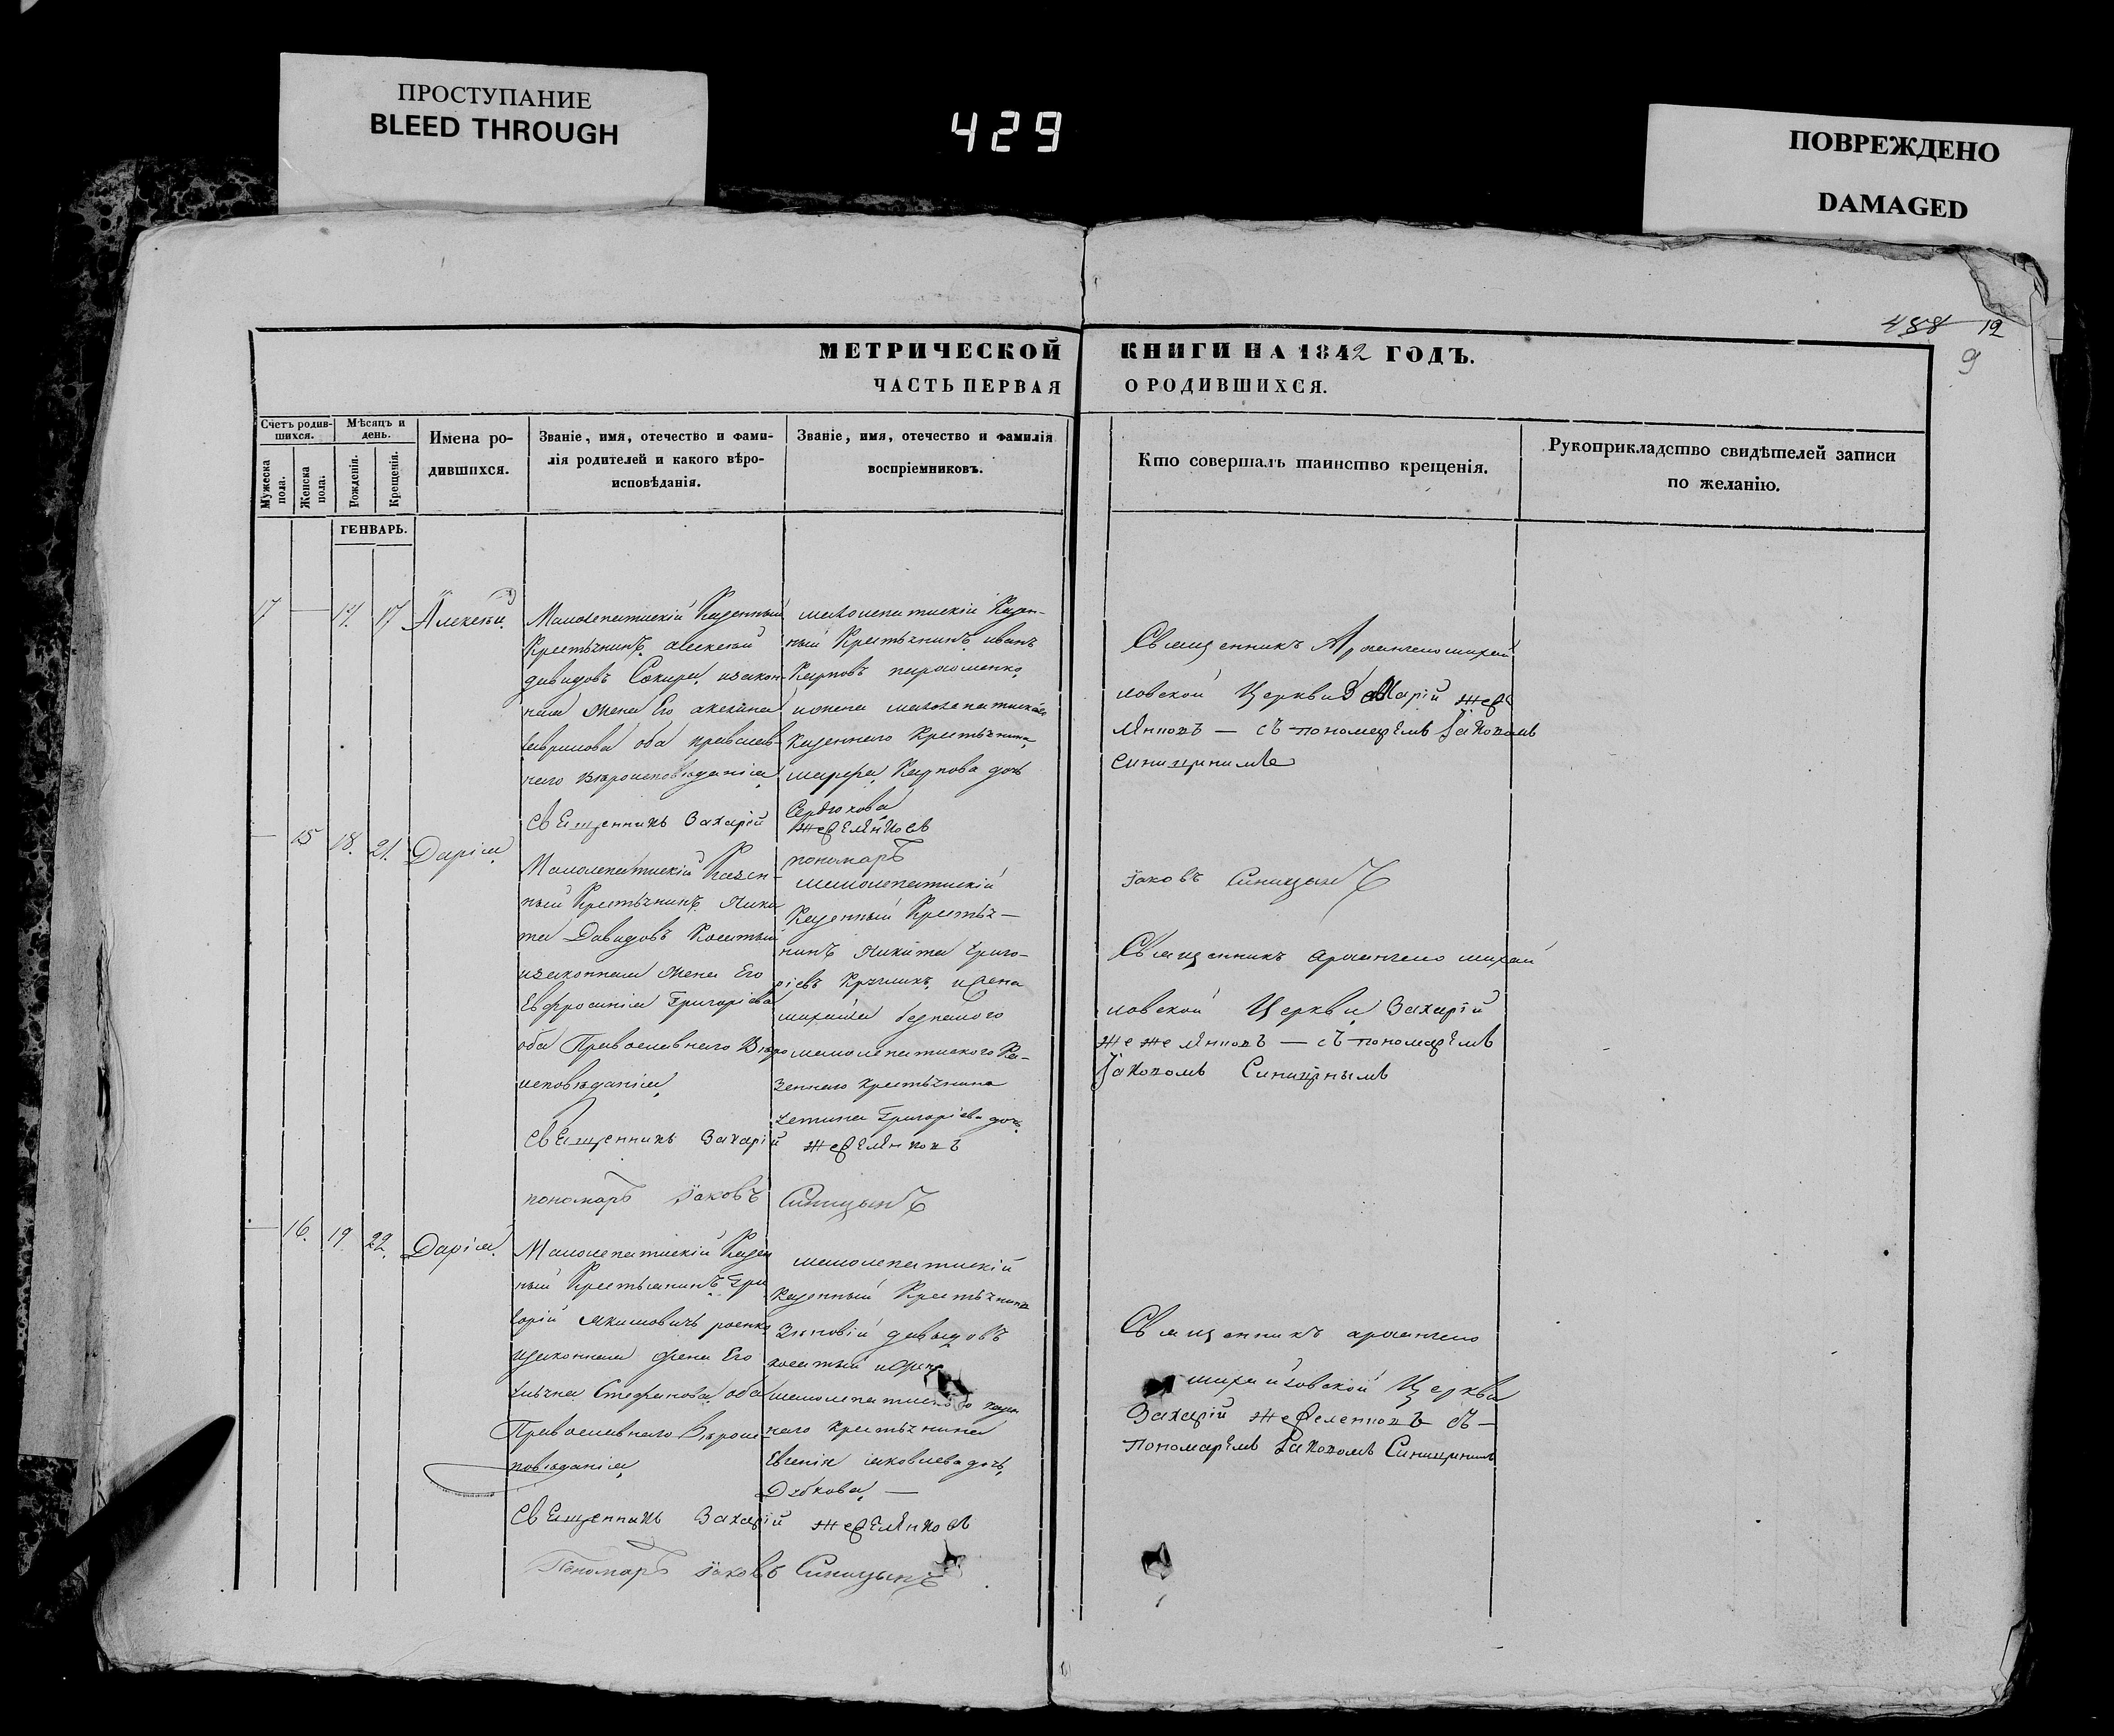 ПРОСТУПАНИЕ
BLEED THROUGH
429
ПОВРЕЖДЕНО
DAMAGED
488 12
9
МЕТРИЧЕСКОЙ КНИГИ НА 1842 ГОДЪ.
ЧАСТЬ ПЕРВАЯ О РОДИВШИХСЯ.
Счетъ родив-
шихся.
Мужеска
пола.
Женска
пола.
Мѣсяцъ и
день.
Рожденія.
Крещенія.
Имена ро-
дившихся.
Званіе, имя, отечество и фами-
лія родителей и какого вѣро-
исповѣданія.
Званіе, имя, отечество и фамилія
воспріемниковъ.
Кто совершалъ таинство крещенія.
Рукоприкладство свидѣтелей записи
по желанію.
ГЕНВАРЬ.
17 — 14. 17 Алексѣй
Малолепатискій Казенный
Крестьянинъ алексѣй
давидовъ Сокира, изакон-
ная жена Его
оба православ-
наго вѣроисповѣданія
Священникъ Захарій
малолепатискій Казен-
ный Крестьянинъ иванъ
Карповъ пархоменко
ижена малолепатискаго
Казеннаго Крестьянина
марфа Карпова дочь
Сердюкова
пономарь
Священникъ Архангеломихай
ловской Церкви Захарій
— съ пономаремъ Іаковомъ
Синицинимъ
Іаковъ Синицынъ
— 15 18. 21. Дарія
Малолепатискій Казен-
ный Крестьянинъ Ники
та Давидовъ Косатый
изаконная жена Его
Евфросинія Григоріева
оба Православнаго Вѣро
исповѣданія
Священникъ Захарій
пономарь Іаковъ
малолепатискій
Казенный Крестья—
нинъ Никита Григо-
ріевъ ижена
малолепатиского Ка-
зеннаго крестьянина
Григоріева дочь
Синицынъ
Священникъ архангело михай
ловской Церкви Захарій
— съ пономаремъ
Іаковомъ Синицынымъ
— 16. 19. 22. Дарія.
Малолепатискій Казен
ный Крестьянинъ Гри
горій Якимовичъ роенко
изаконная жена Его
Стефанова оба
Православнаго Вѣроис-
повѣданія
Священникъ Захарій
Пономарь Іаковъ
малолепатискій
Казенный Крестьянинъ
Зиновій давыдовъ
косатый ижена
малолепатискаго казен
наго крестьянина
Евгенія іаковлева дочь
—
Синицынъ
Священникъ архангело
михайловской Церкви
Захарій съ —
пономаремъ Іаковомъ Синицинимъ